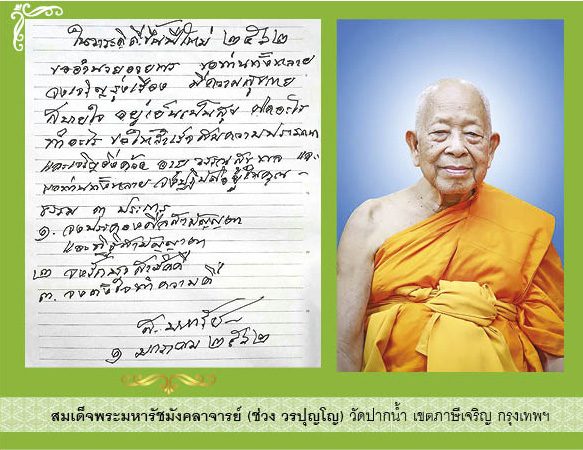 ในวาระดิถีขึ้นปีใหม่ ๒๕๖๒
ขออำนวยอวยพร ขอท่านทั้งหลาย
จงเจริญรุ่งเรือง มีความสุขกาย
สบายใจ อยู่เย็นเป็นสุข
ทำอะไร ขอให้สำเร็จ ความปรารถนา
และเจริญยิ่งด้วย อายุ วรรณะ สุขะ พละ และ
ขอท่านทั้งหลาย จงปฏิบัติอยู่ในคุณ -
ธรรม ๓ ประการ
๑. จงประคองศีลสามัญญตา
และทิฏฐิสามัญญตา
๒ จงรักษาสามัคคี
๓. จงตั้งใจทำความดี
ส. มหารัช
๑ มกราคม ๒๕๖๒
สมเด็จพระมหารัชมังคลาจารย์ (ช่วง วรปุญฺโญ) วัดปากน้ำ เขตภาษีเจริญ กรุงเทพฯ